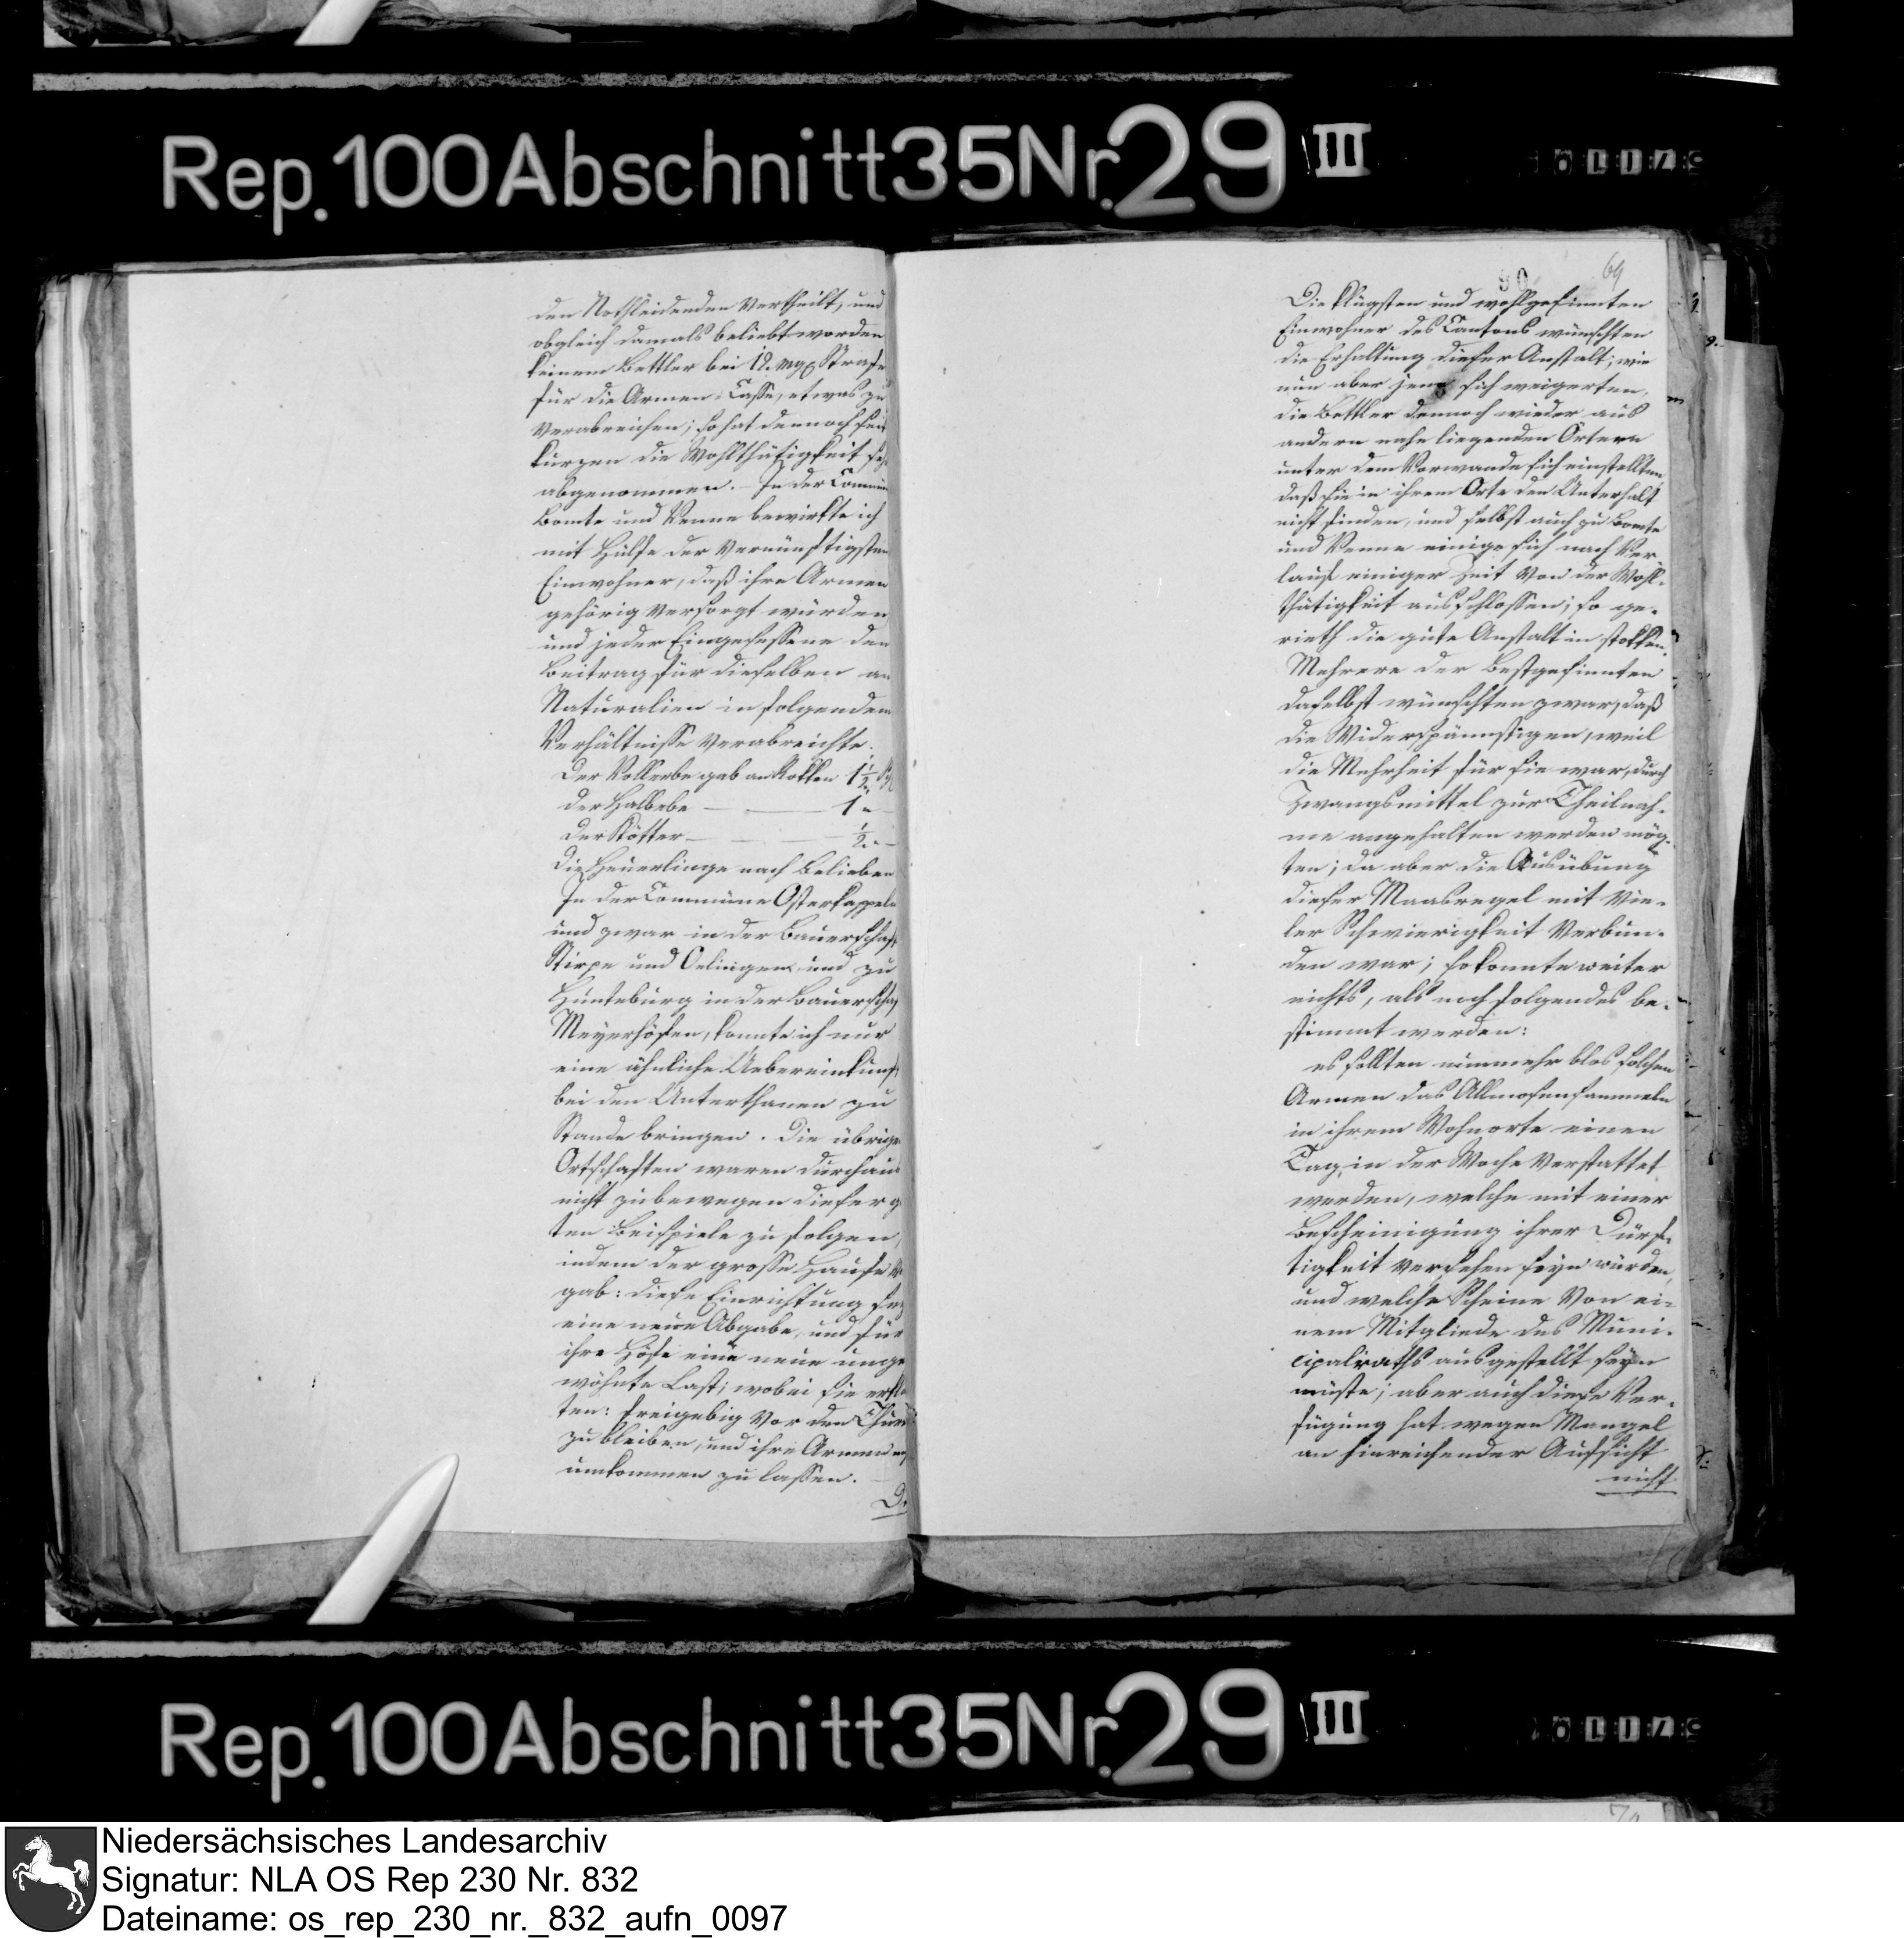 Rep. 100 Abschnitt 35 Nr. 29 III
den Nothleidenden vertheilt, und
obgleich damals beliebt worden
keinem Bettler bei 12. mgr Strafe
für die Armen-Casse, etwas zu
verabreichen; so hat dennoch seit
kurzen die Wohlthätigkeit sehr
abgenommen. In der Commüne
Bomte und Venne bewirkte ich
mit Hülfe der vernünftigsten
Einwohner, daß ihre Armen
gehörig versorgt würden
und jeder Eingesessene den
Beitrag für dieselben an
Naturalien in folgendem
Verhältnisse verabreichte.
Der Vollerbe gab an Rokken 1 1/2
der Halbebe — 1 "
der Kötter — 1/2 "
die Heuerlinge nach Belieben
In der Commüne Osterkappeln
und zwar in der Bauerschaft
Stirpe und Oelingen und zu
Hunteburg in der Bauerschaft
Meyerhöfen, konnte ich nur
eine ähnliche Uebereinkunft
bei den Unterthanen zu
Stande bringen. Die übrigen
Ortschaften waren durchaus
nicht zu bewegen dieser g
ten Beispiele zu folgen,
indem der grosse Haufe
gab: diese Einrichtung sey
eine neue Abgabe, und für
ihre Höfe eine neue unge
wöhnte Last; wobei sie erklä
ten: freigebig vor den Thüren
zu bleiben, und ihre Armen
umkommen zu lassen.
69
Die klügsten und wohlgesinnten
Einwohner des Cantons wünschten
die Erhaltung dieser Anstalt; wie
nun aber jene sich weigerten,
die Bettler dennoch wieder aus
andern nahe liegenden Örtern
unter dem Vorwande sich einstellten
daß sie in ihrem Orte den Unterhalt
nicht finden, und selbst auch zu Bomte
und Venne einige sich nach Ver-
lauf einiger Zeit von der Wohl-
thätigkeit ausschlossen; so ge-
rieth die gute Anstalt in stokken.
Mehrere der Bestgesinnten
daselbst wünschten zwar, daß
die Widerspännstigen, weil
die Mehrheit für sie war, durch
Zwangsmittel zur Theilnah-
me angehalten werden mög-
ten; da aber die Ausübung
dieser Maasregel mit vie-
ler Schwierigkeit verbun-
den war; so konnte weiter
nichts, als noch folgendes be-
stimmt werden:
es sollten nunmehr blos solchen
Armen das Allmosensammeln
in ihrem Wohnorte einen
Tag in der Woche verstattet
werden, welche mit einer
Bescheinigung ihrer Dürf-
tigkeit versehen seyn würden,
und welche Scheine von ei-
nem Mitgliede des Muni-
cipalraths ausgestellt seyn
müste; aber auch diese Ver-
fügung hat wegen Mangel
an hinreichender Aufsicht
nicht
Rep. 100 Abschnitt 35 Nr. 29 III
Niedersächsisches Landesarchiv
Signatur: NLA OS Rep 230 Nr. 832
Dateiname: os_rep_230_nr._832_aufn_0097